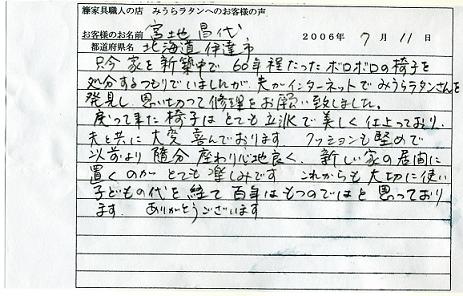 籐家具職人の店 みうらラタンへのお客様の声
お客様のお名前 宮地 昌代
2006年 7月 11日
都道府県名 北海道 伊達市
只今家を新築中で60年程だったボロボロの椅子を
処分するつもりでいましたが夫がインターネットでみうらラタンさんを
発見し思い切って修理をお願い致しました。
戻って来た椅子はとても立派で美しく仕上っており、
夫と共に大変喜んでおります クッションも堅めで
以前より随分座わり心地良く、新しい家の居間に
置くのがとても楽しみです これからも大切に使い
子どもの代を経て百年はもつのではと思っており
ます。 ありがとうございます